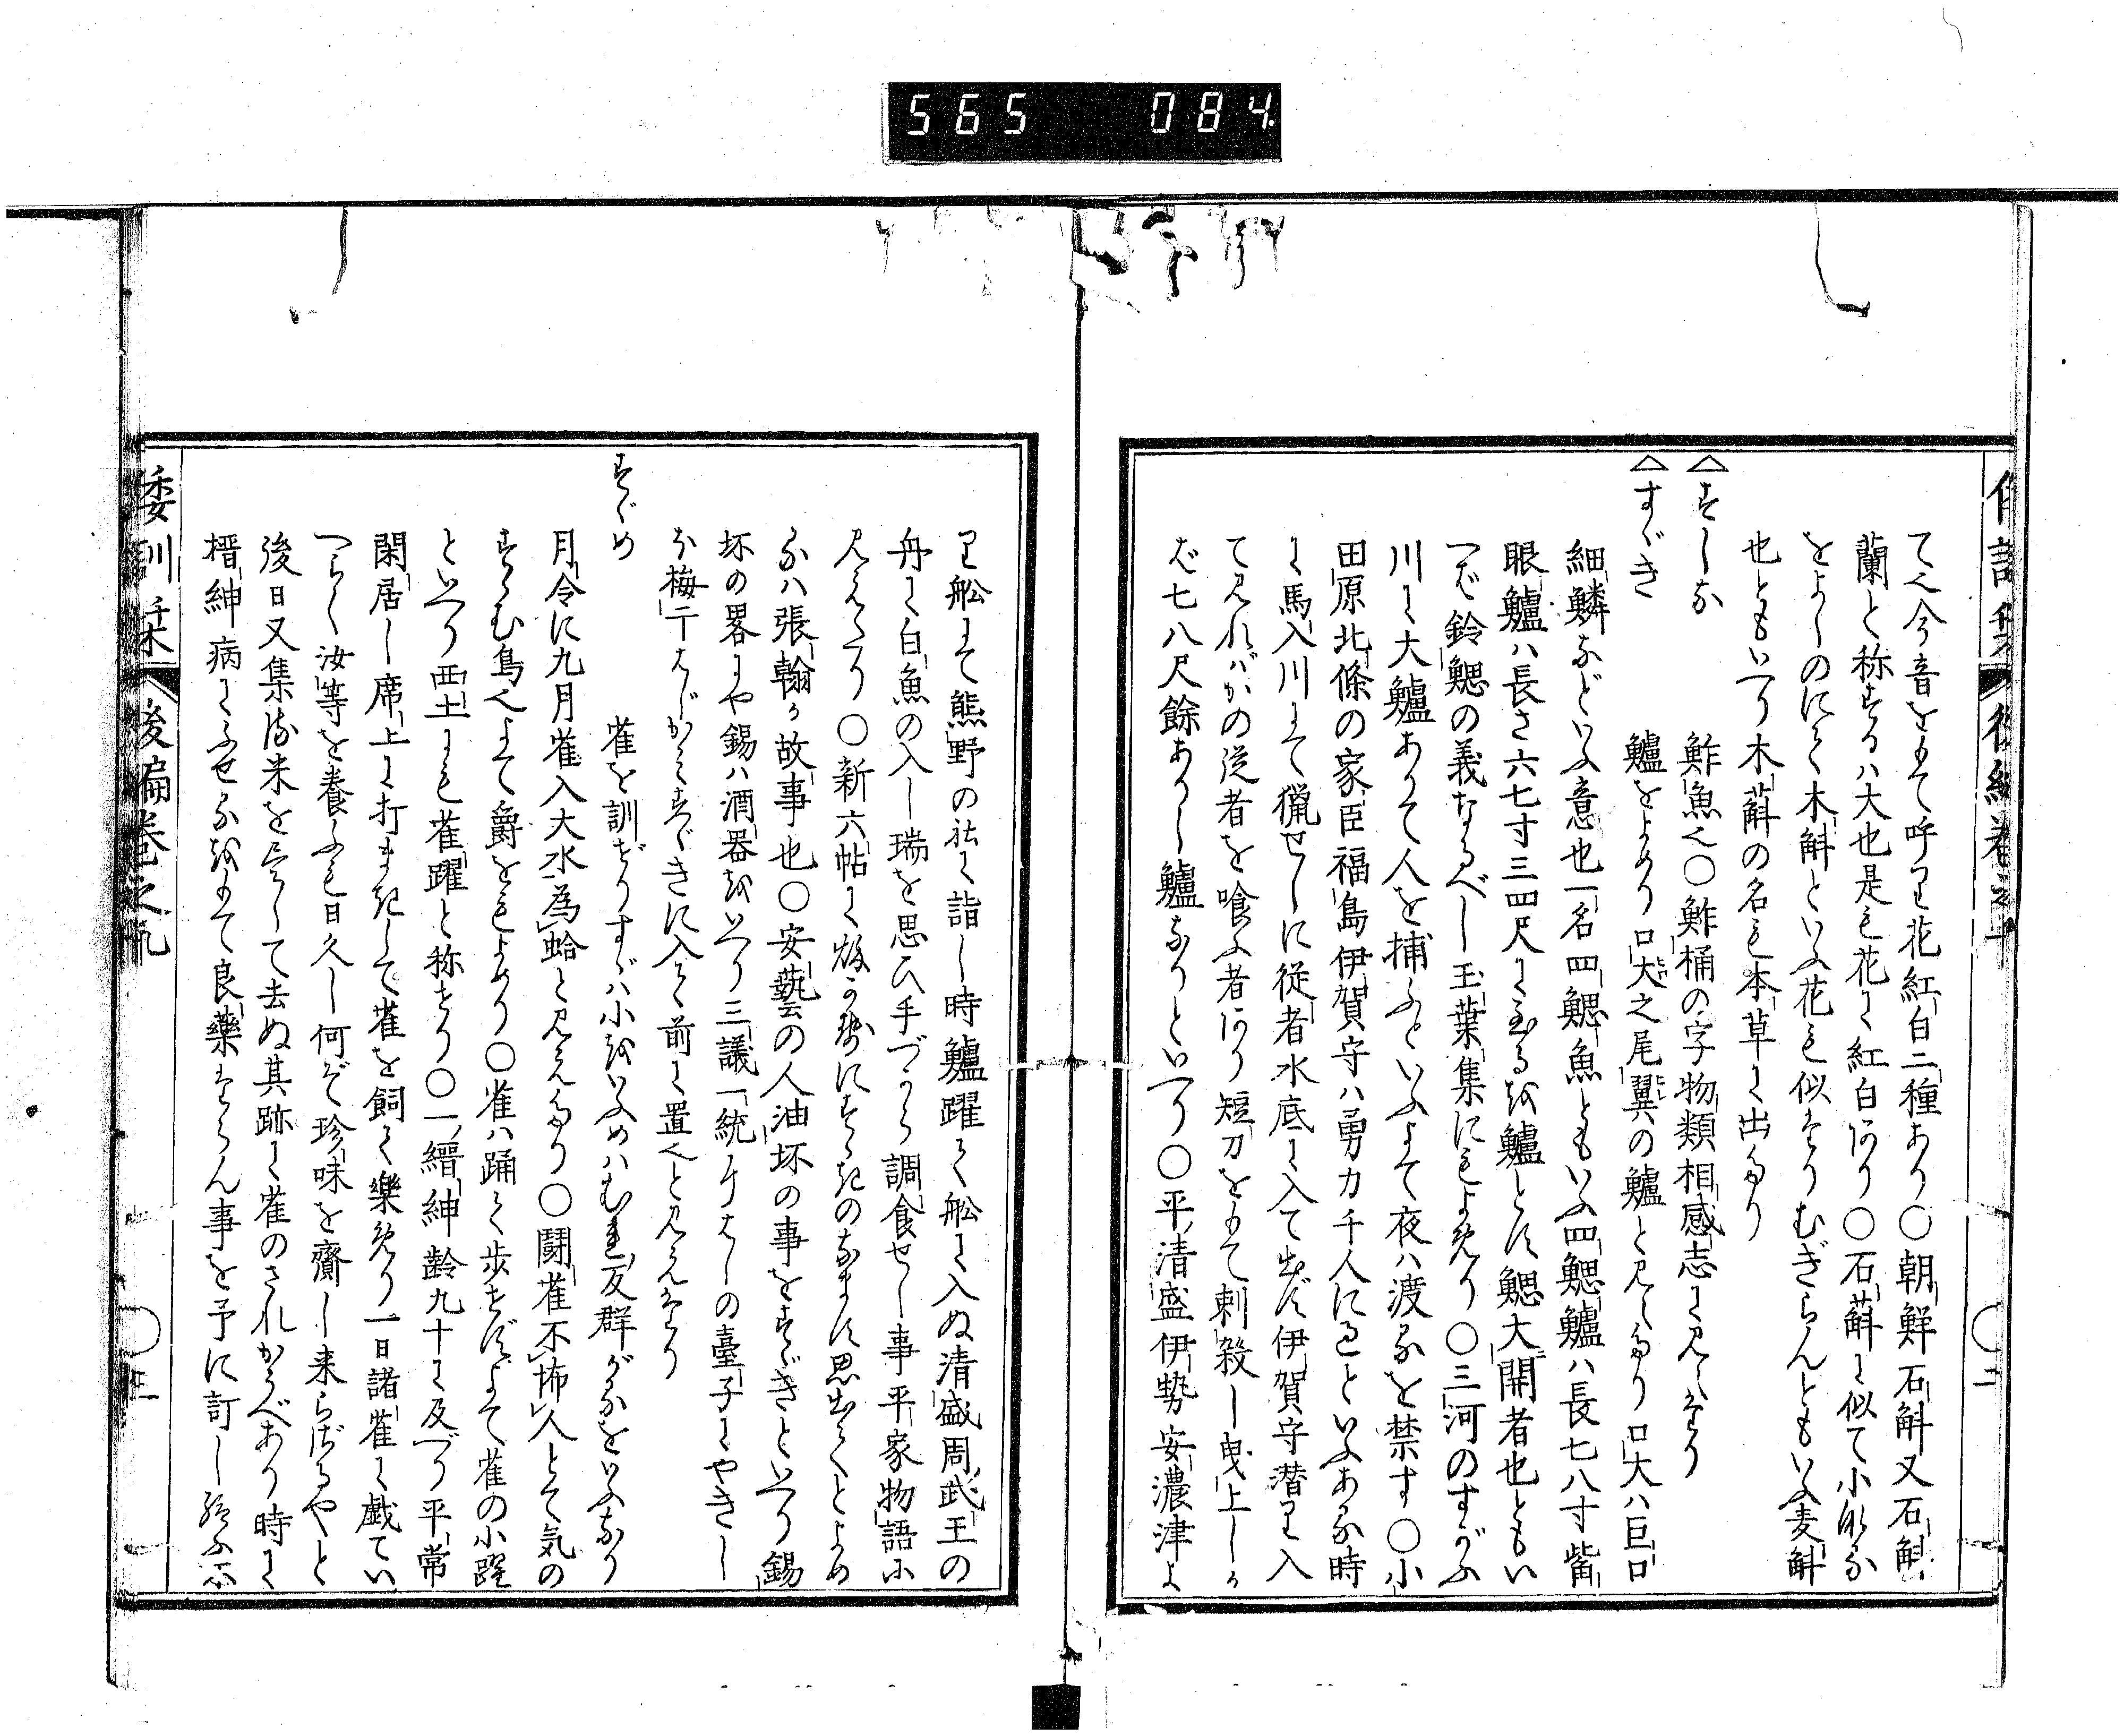 565 084
てへ今音をもて呼り花紅白二種あり〇朝鮮石斛又石斛
蘭と称するハ大也是も花に紅白あり〇石斛に似て小なる
をよしのにて木斛といふ花も似たりむぎらんともいふ麦斛
也ともいへり木斛の名も本草に出たり
△すしな 鮓魚也〇鮓桶の字物類相感志に見えたり
△すゞき 鱸をよめり口大之尾翼の鱸と見えたり口大ハ巨口
細鱗などいふ意也一名四鰓魚ともいふ四鰓鱸ハ長七八寸觜
眼鱸ハ長さ六七寸三四尺に至るを鱸とす鰓大開者也ともい
へば鈴鰓の義なるべし玉葉集にもよめり〇三河のすがふ
川に大鱸ありて人を捕ふといふよて夜ハ渡るを禁す〇小
田原北條の家臣福島伊賀守ハ勇力千人に過といふある時
に馬入川にて猟せしに従者水底に入て出ず伊賀守潜り入
て見れバかの従者を喰ふ者あり短刀をもて刺殺し曳上しか
ば七八尺餘ありし鱸なりといへり〇平清盛伊勢安濃津よ
り舩にて熊野の社に詣し時鱸躍て舩に入ぬ清盛周武王の
舟に白魚の入し瑞を思ひ手づから調食せし事平家物語に
見えたり〇新六帖に
るハ張翰か故事也〇安藝の人油坏の事をすゞきといへり錫
坏の畧にや錫ハ酒器をいへり三議一統にはしの臺子にやきし
ほ梅干はじかみすゞきに入て前に置へと見えたり
すゞめ 雀を訓ぜりすゞハ小をいふめハむれ反群がるをいふなり
月令に九月雀入大水為蛤と見えたり〇闘雀不怖人とて気の
すゝむ鳥也よて爵をもよめり〇雀ハ踊て歩せずよて雀の小躍
といへり西土にも雀躍と称せり〇一縉紳齢九十に及べり平常
閑居し席上に打まきして雀を飼て樂めり一日諸雀に戯てい
へらく汝等を養ふも日久し何ぞ珍味を齎し来らざるやと
後日又集る時米を
して去ぬ其跡に雀のされかうべあり時に
搢紳病にふせるをもて良藥ならん事を予に訂し給ふ不
倭訓栞 後編巻之九